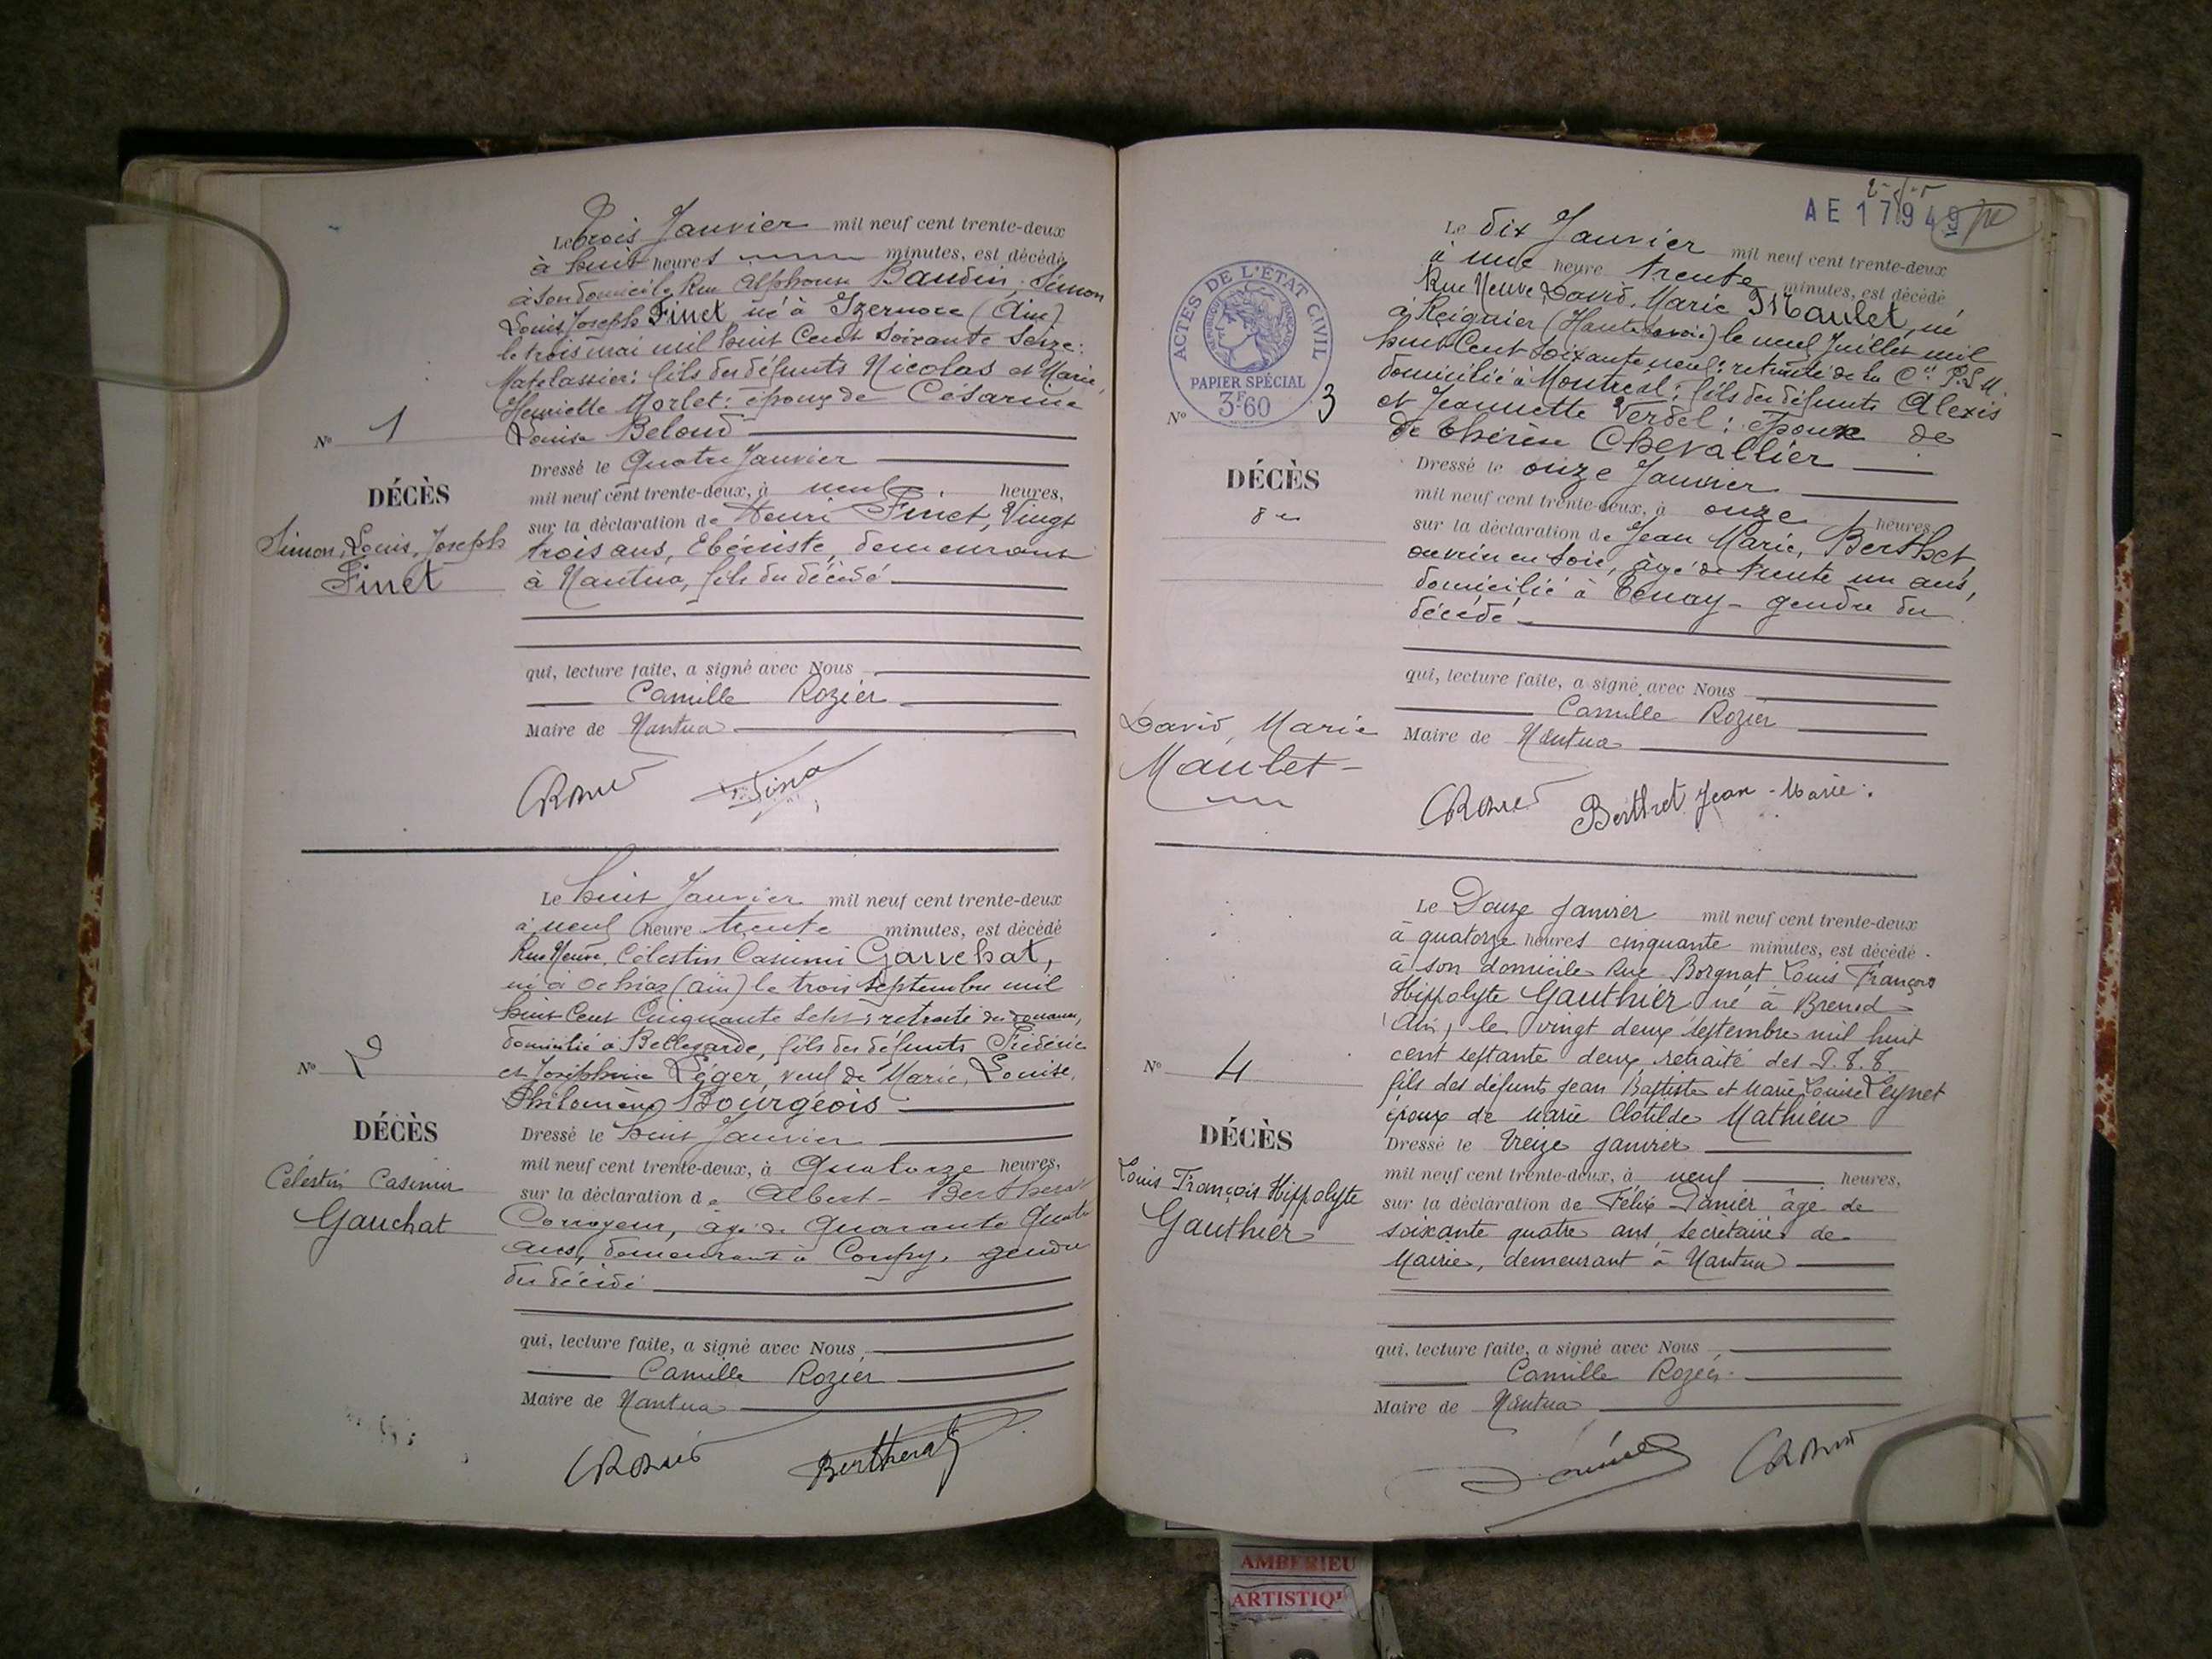 Le trois Janvier mil neuf cent trente-deux
à huit heures minutes, est décédé
à son domicile Rue Alphonse Baudin, Simon
Louis Joseph Finet né à Izernore (Ain)
le trois mai mil huit Cent soixante seize:
Matelassier: fils des défunts Nicolas et Marie
Henriette Morlet: époux de Césarine
Louise Beloud
Dressé le Quatre Janvier
mil neuf cent trente-deux, à neuf heures,
sur la déclaration de Henri Finet, Vingt
trois ans, Ebéniste, demeurant
à Nantua, fils du décédé
qui, lecture faite, a signé avec Nous
Camille Rozier
Maire de Nantua
No 1
DÉCÈS
Simon, Louis, Joseph
Finet
Le huit Janvier mil neuf cent trente-deux
à neuf heure trente minutes, est décédé
Rue Neuve, Célestin Casimir Gauchat,
né à Ochiaz (Ain) le trois septembre mil
huit Cent Cinquante sept; retraité des douanes,
domicilié à Bellegarde, fils des défunts Frédéric
et Joséphine Léger, veuf de Marie, Louise,
Philomène Bourgeois
Dressé le huit Janvier
mil neuf cent trente-deux, à Quatorze heures,
sur la déclaration de Albert Bertherat
Corroyeur, âgé de Quarante Quatre
ans, demeurant à Coupy, gendre
du décédé
qui, lecture faite, a signé avec Nous
Camille Rozier
Maire de Nantua
Bertherat
No 2
DÉCÈS
Célestin Casimir
Gauchat
AE 17949
Le dix Janvier mil neuf cent trente-deux
à une heure trente minutes, est décédé
Rue Neuve, David, Marie Maulet, né
à Reignier (Haute Savoie) le neuf Juillet mil
huit Cent soixante neuf: retraité de la Cie P.L.M.
domicilié à Montréal: fils des défunts Alexis
et Jeannette Verdel: époux de
de Thérèse Chevallier
Dressé le onze Janvier
mil neuf cent trente-deux, à onze heures,
sur la déclaration de Jean Marie, Berthet,
ouvrier en soie, âgé de trente un ans,
domicilié à Tenay - gendre du
décédé
qui, lecture faite, a signé avec Nous
Camille Rozier
Maire de Nantua
Berthet Jean-Marie.
ACTES DE L'ÉTAT CIVIL
RÉPUBLIQUE FRANÇAISE
PAPIER SPÉCIAL
3F60
No 3
DÉCÈS
David, Marie
Maulet
Le Douze janvier mil neuf cent trente-deux
à quatorze heures cinquante minutes, est décédé
à son domicile Rue Borgnat, Louis François
Hippolyte Gauthier né à Brenod
(Ain) le vingt deux septembre mil huit
cent septante deux, retraité des P.T.T.
fils des défunts Jean Baptiste et Marie Louise Leynet
époux de Marie Clotilde Mathieu
Dressé le treize janvier
mil neuf cent trente-deux, à neuf heures,
sur la déclaration de Félix Danier âgé de
soixante quatre ans, secrétaire de
Mairie, demeurant à Nantua
qui, lecture faite, a signé avec Nous
Camille Rozier
Maire de Nantua
No 4
DÉCÈS
Louis François Hippolyte
Gauthier
AMBERIEU
ARTISTIQ